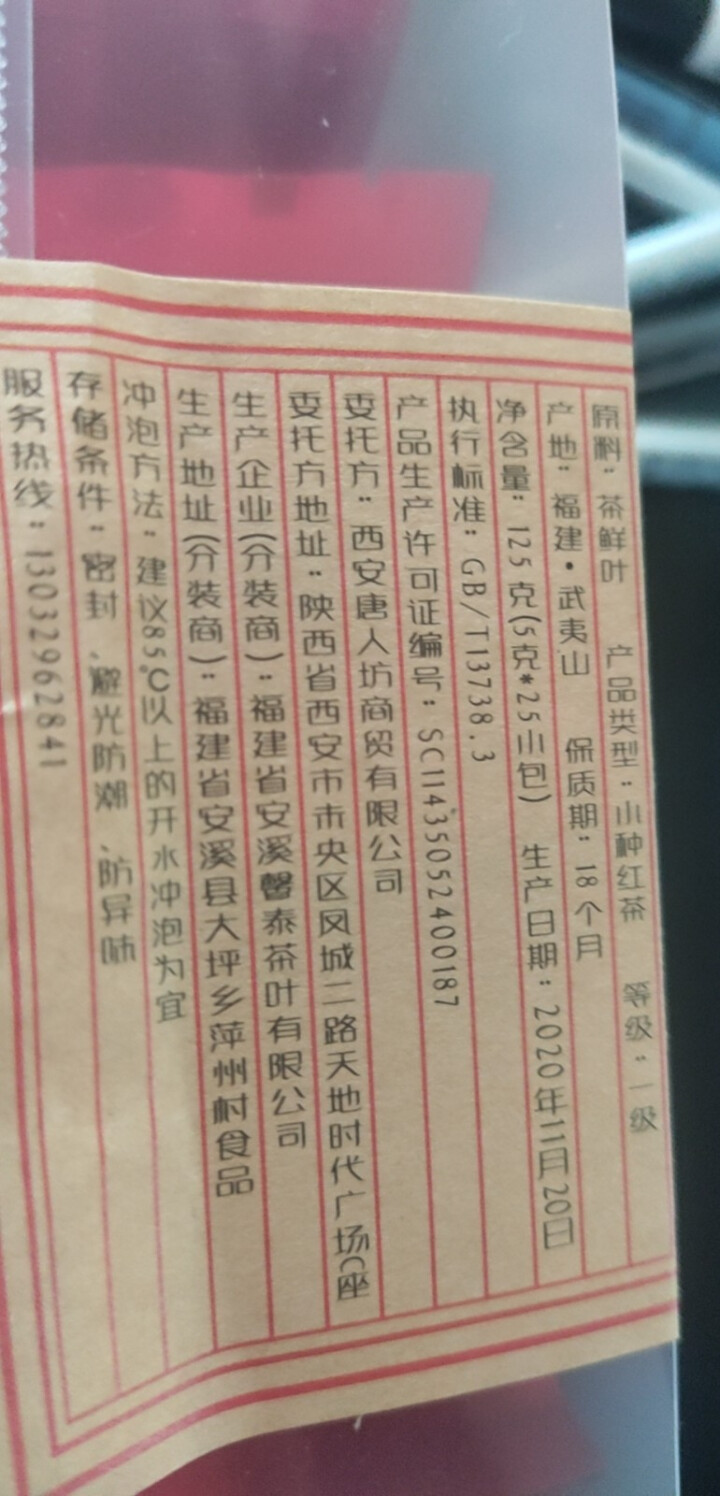 原料：茶鲜叶 产品类型：小种红茶 等级：一级
产地：福建·武夷山 保质期：18个月
净含量：125克(5克*25小包) 生产日期：2020年11月20日
执行标准：GB/T13738.3
产品生产许可证编号：SC11435052400187
委托方：西安唐人坊商贸有限公司
委托方地址：陕西省西安市未央区凤城二路天地时代广场C座
生产企业(分装商)：福建省安溪馨泰茶叶有限公司
生产地址(分装商)：福建省安溪县大坪乡萍州村食品
冲泡方法：建议85℃以上的开水冲泡为宜
存储条件：密封、避光防潮、防异味
服务热线：13032962841